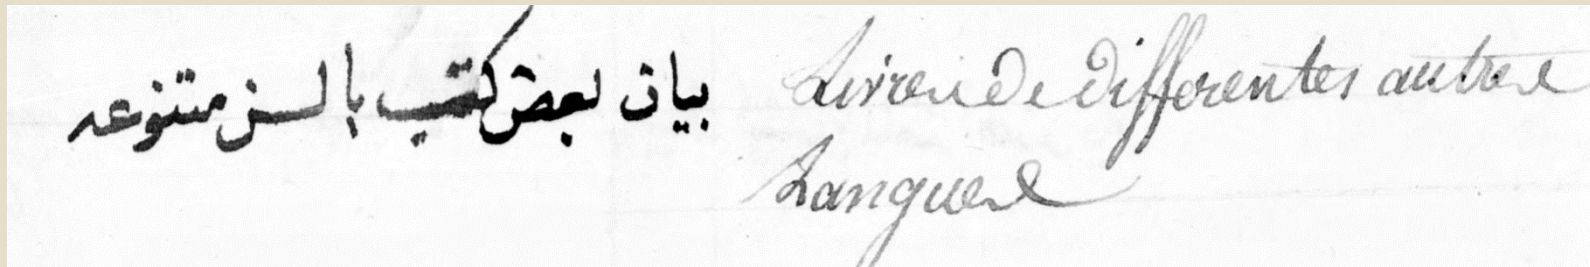 بيان بعض كتب بالسن متنوعه
Livres de differentes autres
Langues